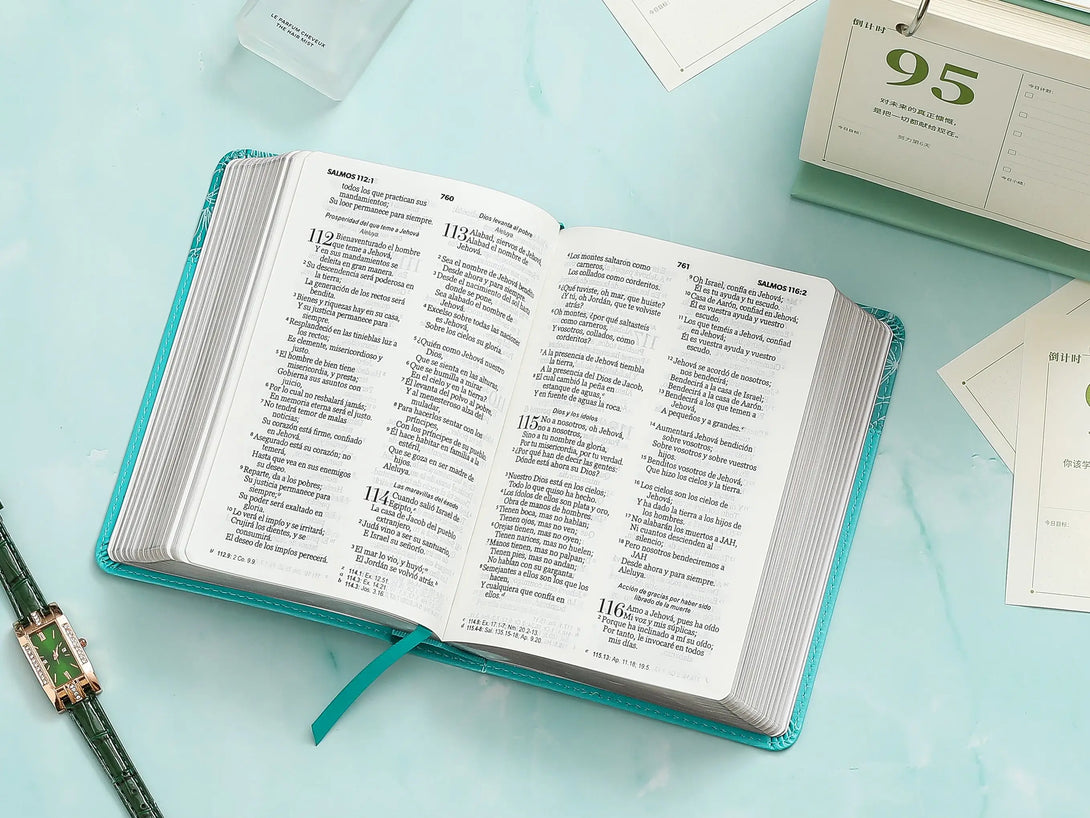 LE PARFUM CHEVEUX
THE HAIR MIST
今日目标:
倒计时
95
对未来的真正慷慨,
是把一切都献给现在。
努力第6天
今日目标:
今日计划:
今日小结:
SALMOS 112:1
760
todos los que practican sus
mandamientos;
Su loor permanece para siempre.
Prosperidad del que teme a Jehová
Aleluya.
112 Bienaventurado el hombre
que teme a Jehová,
Y en sus mandamientos se
deleita en gran manera.
2 Su descendencia será poderosa en
la tierra;
La generación de los rectos será
bendita.
3 Bienes y riquezas hay en su casa,
Y su justicia permanece para
siempre.
4 Resplandeció en las tinieblas luz a
los rectos;
Es clemente, misericordioso y
justo.
5 El hombre de bien tiene
misericordia, y presta;
Gobierna sus asuntos con
juicio,
6 Por lo cual no resbalará jamás;
En memoria eterna será el justo.
7 No tendrá temor de malas
noticias;
Su corazón está firme, confiado
en Jehová.
8 Asegurado está su corazón; no
temerá,
Hasta que vea en sus enemigos
su deseo.
9 Reparte, da a los pobres;
Su justicia permanece para
siempre;
Su poder será exaltado en
gloria.
10 Lo verá el impío y se irritará;
Crujirá los dientes, y se
consumirá.
El deseo de los impíos perecerá.
112.9: 2 Co. 9.9
Dios levanta al pobre
Aleluya.
113 Alabad, siervos de Jehová,
Alabad el nombre de
Jehová.
2 Sea el nombre de Jehová bendito
Desde ahora y para siempre.
3 Desde el nacimiento del sol hasta
donde se pone,
Sea alabado el nombre de
Jehová.
4 Excelso sobre todas las naciones
es Jehová,
Sobre los cielos su gloria.
5 ¿Quién como Jehová nuestro
Dios,
Que se sienta en las alturas,
6 Que se humilla a mirar
En el cielo y en la tierra?
7 Él levanta del polvo al pobre,
Y al menesteroso alza del
muladar,
8 Para hacerlos sentar con los
príncipes,
Con los príncipes de su pueblo.
9 Él hace habitar en familia a la
estéril,
Que se goza en ser madre de
hijos.
Aleluya.
Las maravillas del éxodo
114 Cuando salió Israel de
Egipto,
La casa de Jacob del pueblo
extranjero,
2 Judá vino a ser su santuario,
E Israel su señorío.
3 El mar lo vio, y huyó;
El Jordán se volvió atrás.
a 114.1: Ex. 12.51.
a 114.3: Ex. 14.21.
b 114.3: Jos. 3.16.
761
SALMOS 116:2
4 Los montes saltaron como
carneros,
Los collados como corderitos.
5 ¿Qué tuviste, oh mar, que huiste?
¿Y tú, oh Jordán, que te volviste
atrás?
6 Oh montes, ¿por qué saltasteis
como carneros,
Y vosotros, collados, como
corderitos?
7 A la presencia de Jehová tiembla
la tierra,
A la presencia del Dios de Jacob,
8 El cual cambió la peña en
estanque de aguas,
Y en fuente de aguas la roca.
Dios y los ídolos
115 No a nosotros, oh Jehová,
no a nosotros,
Sino a tu nombre da gloria,
Por tu misericordia, por tu verdad.
2 ¿Por qué han de decir las gentes:
Dónde está ahora su Dios?
3 Nuestro Dios está en los cielos;
Todo lo que quiso ha hecho.
4 Los ídolos de ellos son plata y oro,
Obra de manos de hombres.
5 Tienen boca, mas no hablan;
Tienen ojos, mas no ven;
6 Orejas tienen, mas no oyen;
Tienen narices, mas no huelen;
7 Manos tienen, mas no palpan;
Tienen pies, mas no andan;
No hablan con su garganta.
8 Semejantes a ellos son los que los
hacen,
Y cualquiera que confía en
ellos.
c 114.8: Ex. 17.1-7; Nm. 20.2-13.
d 115.4-8: Sal. 135.15-18; Ap. 9.20.
9 Oh Israel, confía en Jehová;
Él es tu ayuda y tu escudo.
10 Casa de Aarón, confiad en Jehová;
Él es vuestra ayuda y vuestro
escudo.
11 Los que teméis a Jehová, confiad
en Jehová;
Él es vuestra ayuda y vuestro
escudo.
12 Jehová se acordó de nosotros;
nos bendecirá;
Bendecirá a la casa de Israel;
Bendecirá a la casa de Aarón.
13 Bendecirá a los que temen a
Jehová,
A pequeños y a grandes.
14 Aumentará Jehová bendición
sobre vosotros;
Sobre vosotros y sobre vuestros
hijos.
15 Benditos vosotros de Jehová,
Que hizo los cielos y la tierra.
16 Los cielos son los cielos de
Jehová;
Y ha dado la tierra a los hijos de
los hombres.
17 No alabarán los muertos a JAH,
Ni cuantos descienden al
silencio;
18 Pero nosotros bendeciremos a
JAH
Desde ahora y para siempre.
Aleluya.
Acción de gracias por haber sido
librado de la muerte
116 Amo a Jehová, pues ha oído
Mi voz y mis súplicas;
2 Porque ha inclinado a mí su oído;
Por tanto, le invocaré en todos
mis días.
e 115.13: Ap. 11.18; 19.5.
倒计时
你该学
今日目标: